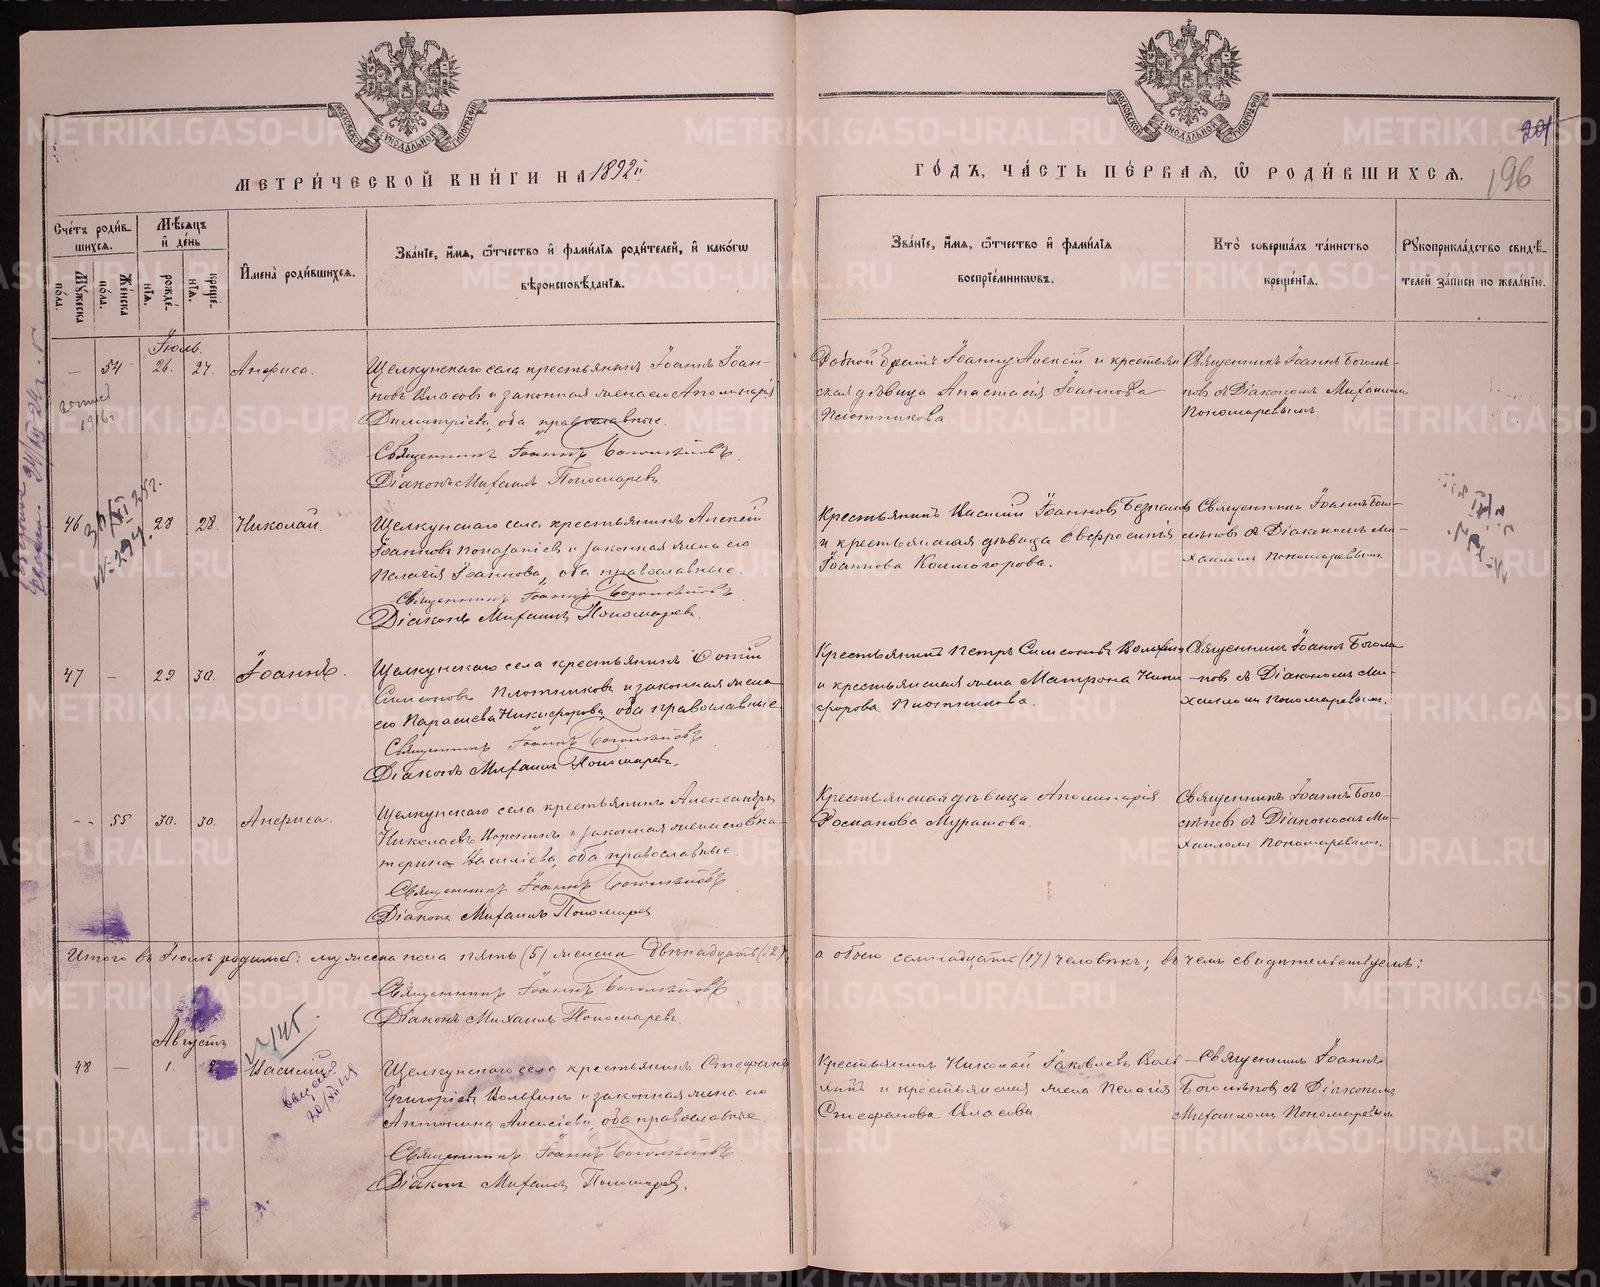 МЕТРИ́ЧЕСКОЙ КНИ́ГИ НА 1892й
ГО́ДЪ, ЧА́СТЬ ПЕ́РВАЯ, Ѡ РОДИ́ВШИХСѦ.
196
Сче́тъ роди́вшихсѧ.
Мѣ́сѧцъ и҆ де́нь
Мꙋ́жеска по́ла.
Же́нска по́ла.
рожде́нїѧ.
креще́нїѧ.
И҆мена̀ роди́вшихсѧ.
Зва́нїе, и҆́мѧ, ѻ҆́тчество и҆ фами́лїѧ роди́телей, и҆ како́гѡ вѣроисповѣ́данїѧ.
Зва́нїе, и҆́мѧ, ѻ҆́тчество и҆ фами́лїѧ воспрїе́мникѡвъ.
Кто̀ соверша́лъ та́инство креще́нїѧ.
Рꙋкоприкла́дство свидѣ́телей за́писи по жела́нїю.
Іюль.
— 54 26. 27. Анфиса.
Щелкунскаго села крестьянинъ Іоаннъ Іоан-
новъ Власовъ и законная жена его Аполинарія
Димитріева, оба православные.
Священникъ Іоаннъ Боголѣповъ.
Діаконъ Михаилъ Пономаревъ
Родной братъ Іоанну Алексій и крестьян
ская дѣвица Анастасія Іоаннова
Плотникова.
Священникъ Іоаннъ Боголѣ-
повъ съ Діакономъ Михаиломъ
Пономаревымъ.
1916г
46 28 28. Николай.
30/XI 25г.
№ 294.
Щелкунскаго села крестьянинъ Алексій
Іоанновъ и законная жена его
Пелагія Іоаннова, оба православные.
Священникъ Іоаннъ Боголѣповъ
Діаконъ Михаилъ Пономаревъ.
Крестьянинъ Василій Іоанновъ
и крестьянская дѣвица Евфросинія
Іоаннова Колмогорова.
Священникъ Іоаннъ Бого-
лѣповъ съ Діакономъ Ми-
хаиломъ Пономаревымъ.
47 — 29 30. Іоаннъ.
Щелкунскаго села крестьянинъ Фотій
Симеоновъ Плотниковъ и законная жена
его Параскева Никифорова, оба православные
Священникъ Іоаннъ Боголѣповъ
Діаконъ Михаилъ Пономаревъ.
Крестьянинъ Петръ Симеоновъ
и крестьянская жена Матрона Ники
форова Плотникова.
Священникъ Іоаннъ Боголѣ
-повъ съ Діакономъ Ми-
хаиломъ Пономаревымъ.
-- 55 30. 30. Анфиса.
Щелкунскаго села крестьянинъ Александръ
Николаевъ и законная жена его Ека-
терина Василіева, оба православные.
Священникъ Іоаннъ Боголѣповъ
Діаконъ Михаилъ Пономаревъ
Крестьянская дѣвица Аполинарія
Романова Мурашова.
Священникъ Іоаннъ Бого-
лѣповъ съ Діакономъ Ми-
хаиломъ Пономаревымъ.
Итого въ Іюлѣ родилось: мужеска пола пять (5) женска двѣнадцать (12),
а обоего семнадцать (17) человѣкъ; въ чемъ свидѣтельствуемъ:
Священникъ Іоаннъ Боголѣповъ
Діаконъ Михаилъ Пономаревъ.
Августъ
48 — 1. 2. Василій
20/XII
Щелкунскаго села крестьянинъ Стефанъ
Григорьевъ Вольхинъ и законная жена его
Антонина Алексіева, оба православные
Священникъ Іоаннъ Боголѣповъ
Діаконъ Михаилъ Пономаревъ.
Крестьянинъ Николай Іаковлевъ Воль
хинъ и крестьянская жена Пелагія
Стефанова Власова.
Священникъ Іоаннъ
Боголѣповъ съ Діакономъ
Михаиломъ Пономаревымъ
METRIKI.GASO-URAL.RU